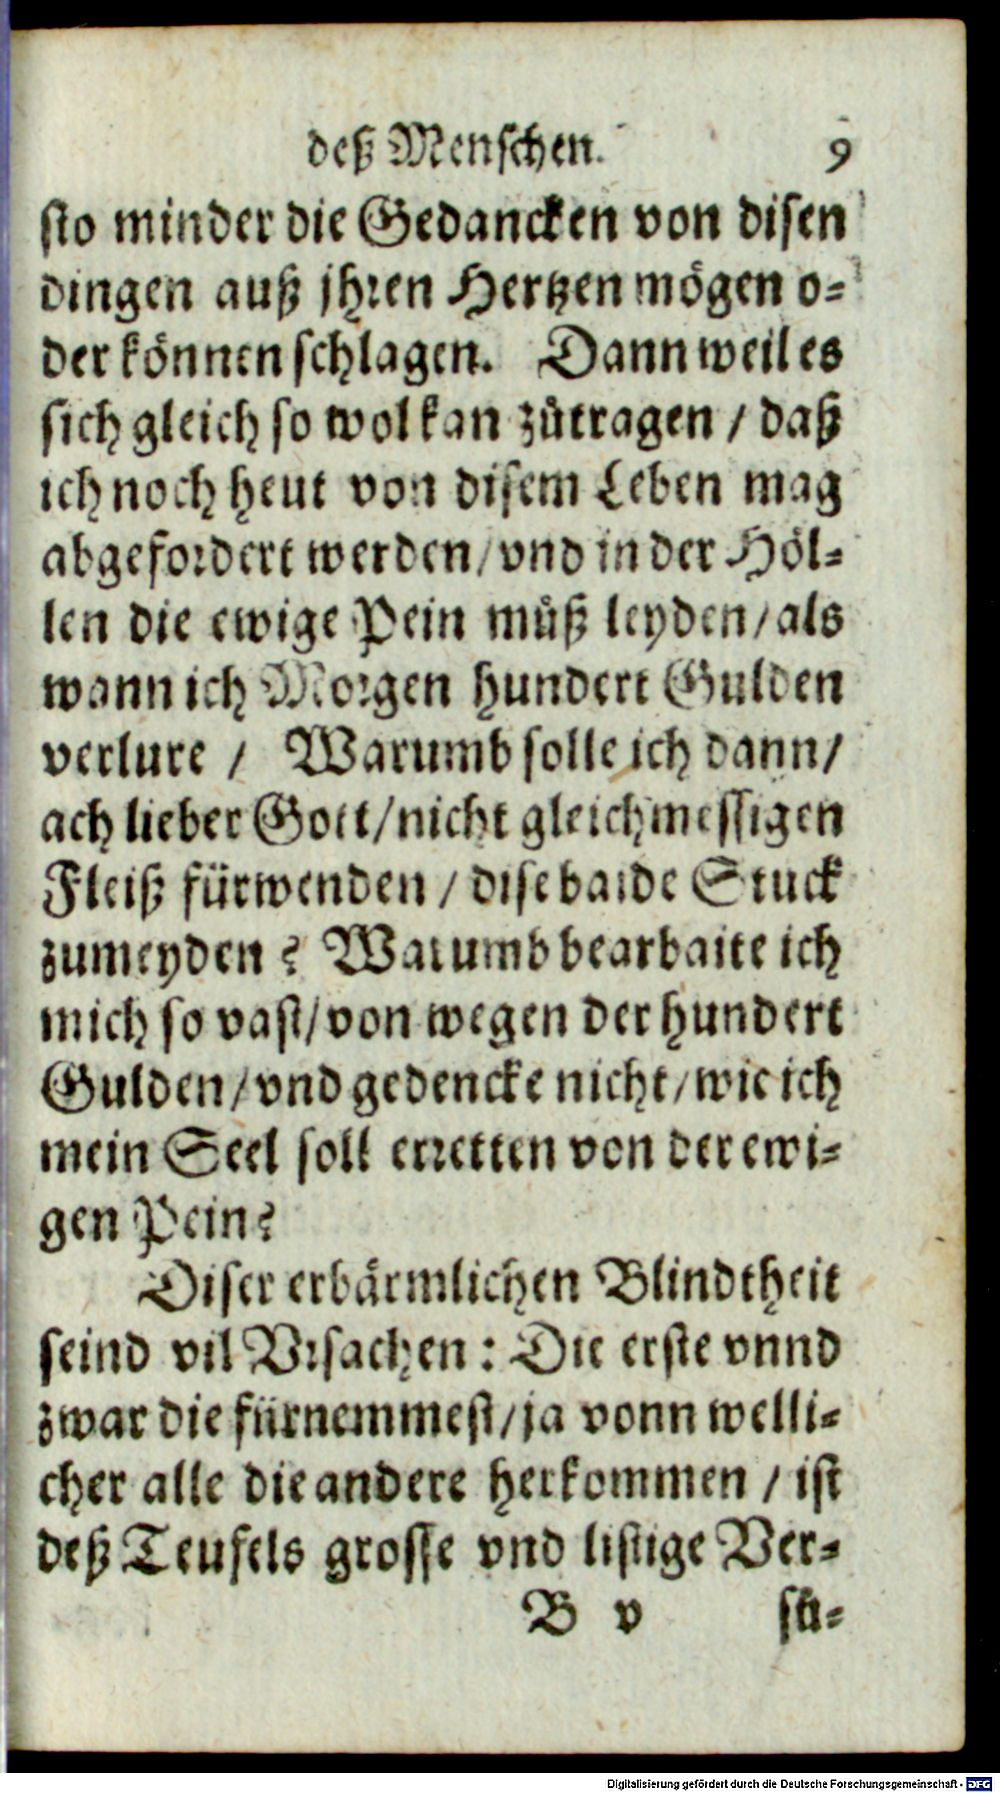 deß Menschen. 9
sto minder die Gedancken von disen
dingen auß jhren Hertzen mögen o-
der können schlagen. Dann weil es
sich gleich so wol kan zůtragen / daß
ich noch heut von disem Leben mag
abgefordert werden / vnd in der Höl-
len die ewige Pein můß leyden / als
wann ich Morgen hundert Gulden
verlure / Warumb solle ich dann /
ach lieber Gott / nicht gleichmessigen
Fleiß fürwenden / dise baide Stuck
zumeyden? Warumb bearbaite ich
mich so vast / von wegen der hundert
Gulden / vnd gedencke nicht / wie ich
mein Seel soll erretten von der ewi-
gen Pein?
Diser erbärmlichen Blindtheit
seind vil Vrsachen: Die erste vnnd
zwar die fürnemmest / ja vonn welli-
cher alle die andere herkommen / ist
deß Teufels grosse vnd listige Ver-
B v sů-
Digitalisierung gefördert durch die Deutsche Forschungsgemeinschaft - DFG